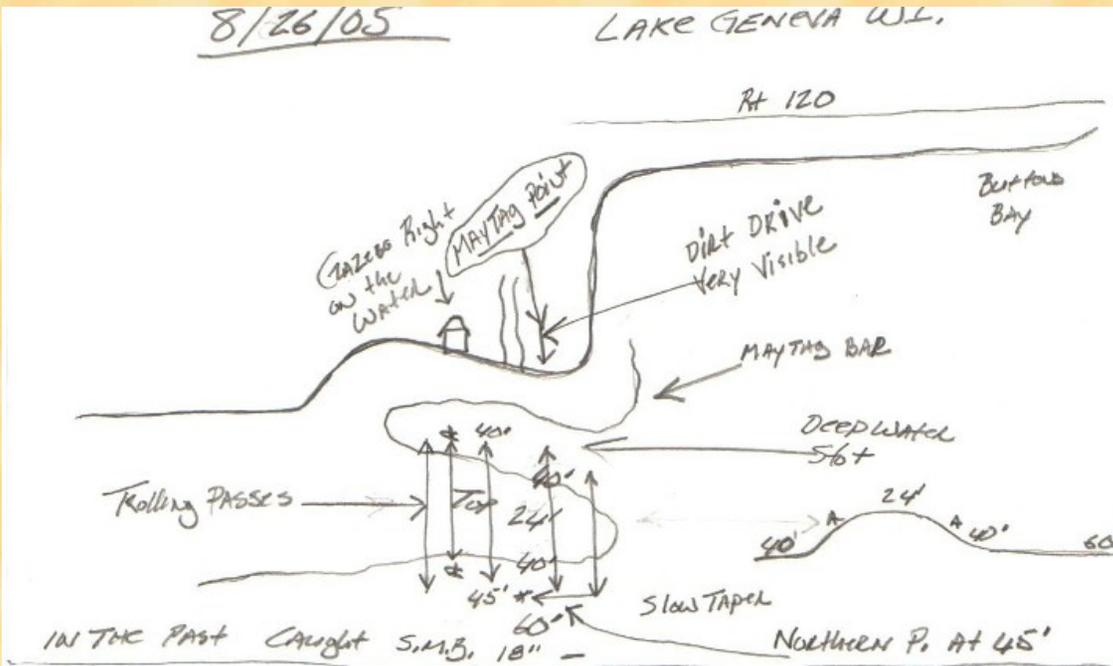 8/26/05
LAKE GENEVA WI.
Rt 120
BAY
MAYTAG POINT
GAZEBO Right
on the
Water
Dirt DRIVE
Very Visible
MAYTAG BAR
DEEP WATER
56+
Trolling PASSES
* 40'
40'
Top
24'
40'
*
45' *
60'
SLOW TAPER
24'
A
A
40'
40'
60
IN THE PAST CAUGHT S.M.B. 18" –
NORTHERN P. AT 45'